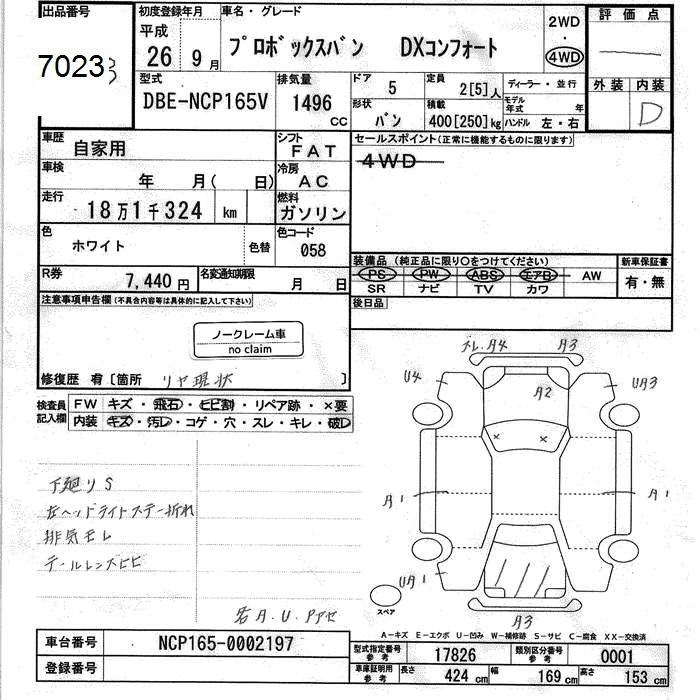 出品番号
7023
初度登録年月
平成
26年 9月
車名・グレード
プロボックスバン DXコンフォート
2WD
・
4WD
評価点
外装 内装
D
型式
DBE-NCP165V
排気量
1496
CC
ドア
5
定員
2[5]人
ディーラー・並行
形状
バン
積載
400[250]kg
モデル年式 年
ハンドル 左・右
車歴
自家用
シフト
FAT
セールスポイント(正常に機能するものに限ります)
4WD
車検
年 月( 日)
冷房
AC
走行
18万1千324 km
燃料
ガソリン
色
ホワイト
色替
色コード
058
装備品 (純正品に限り○をつけてください)
新車保証書
PS PW ABS エアB AW
SR ナビ TV カワ
有・無
R券
7,440円
名変通知期限
月 日
後日品
注意事項申告欄(不具合内容等は具体的に記入して下さい)
ノークレーム車
no claim
修復歴 有 〔箇所 リヤ現状 〕
検査員記入欄
FW キズ・飛石・ヒビ割・リペア跡・×要
内装 キズ・汚レ・コゲ・穴・スレ・キレ・破レ
A4 A3
U4
UA3
A2
× ×
A1
A1
UA1
スペア
A3
下廻りS
左ヘッドライトステー折れ
排気モレ
テールレンズヒビ
A-キズ E-エクボ U-凹み W-補修跡 S-サビ C-腐食 XX-交換済
車台番号
NCP165-0002197
登録番号
型式指定番号
参考
17826
類別区分番号
参考
0001
車庫証明用
参考
長さ 424 cm 幅 169 cm 高さ 153 cm